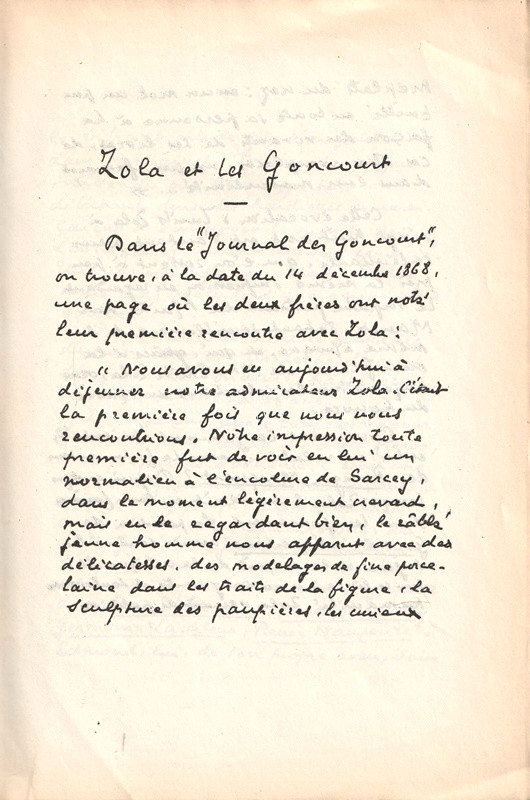 Zola et les Goncourt
Dans le "Journal des Goncourt",
on trouve, à la date du 14 décembre 1868,
une page où les deux frères ont noté
leur première rencontre avec Zola :
" Nous avons eu aujourd'hui à
déjeuner notre admirateur Zola. C'était
la première fois que nous nous
rencontrions. Notre impression toute
première fut de voir en lui un
normalien à l'encolure de Sarcey,
dans le moment légèrement crevard,
mais en le regardant bien, le râblé
jeune homme nous apparut avec des
délicatesses, des modelages de fine porce-
laine dans les traits de la figure, la
sculpture des paupières, les curieux